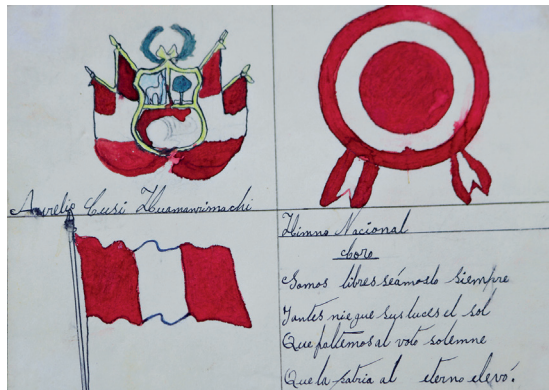 Aurelio Cusi Huamanrimachi
Himno Nacional
Coro
Somos libres seámoslo siempre
Y antes niegue sus luces el sol
Que faltemos al voto solemne
Que la patria al eterno elevó.